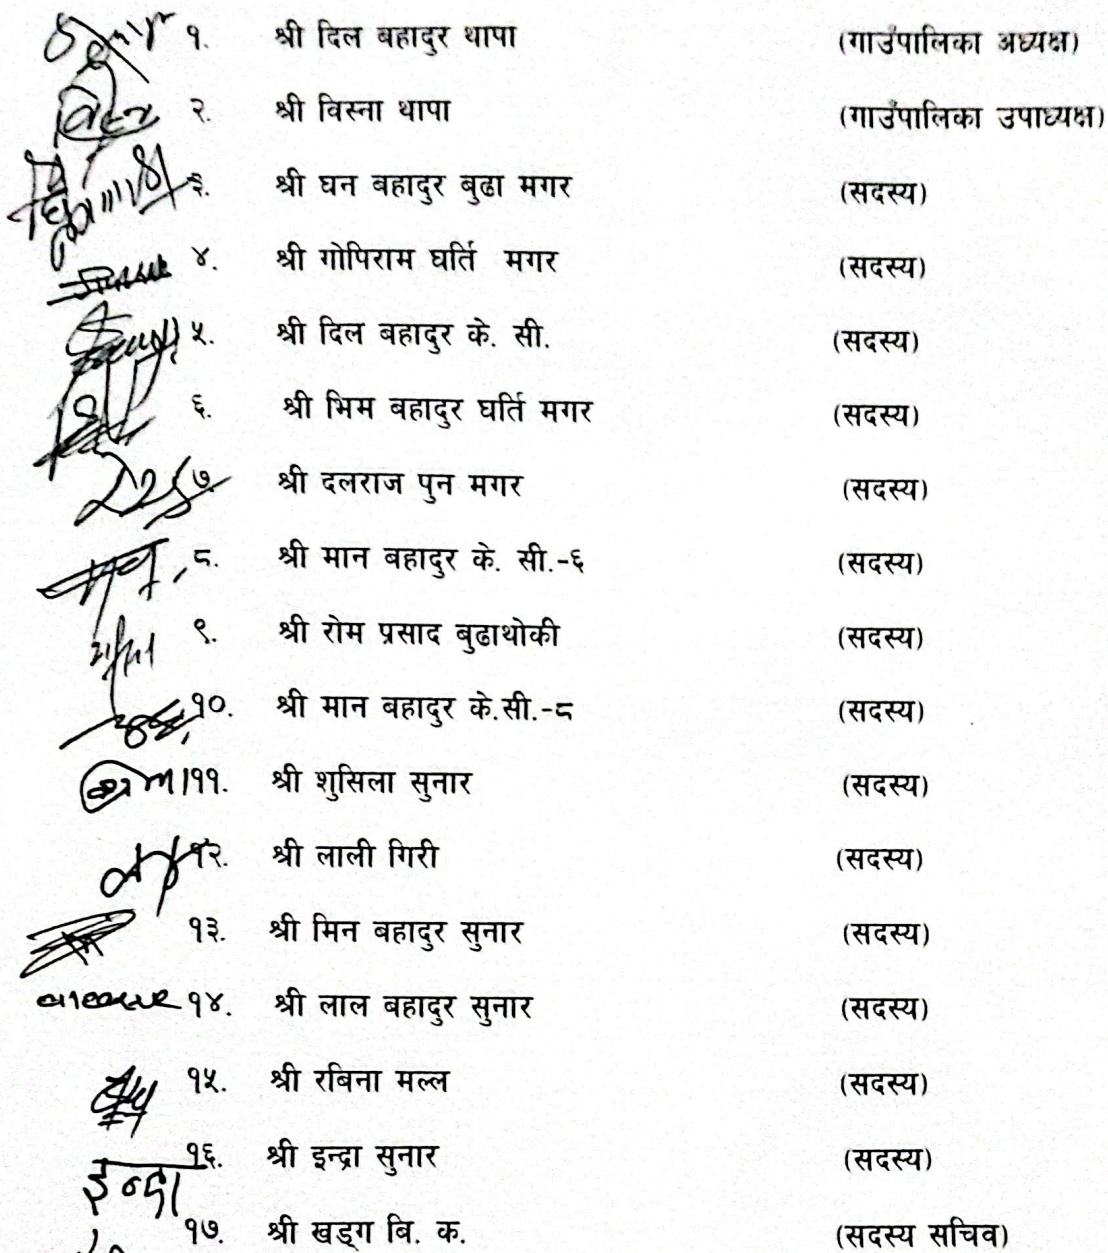 १. श्री दिल बहादुर थापा (गाउँपालिका अध्यक्ष)
२. श्री विस्ना थापा (गाउँपालिका उपाध्यक्ष)
३. श्री घन बहादुर बुढा मगर (सदस्य)
४. श्री गोपिराम घर्ति मगर (सदस्य)
५. श्री दिल बहादुर के. सी. (सदस्य)
६. श्री भिम बहादुर घर्ति मगर (सदस्य)
७. श्री दलराज पुन मगर (सदस्य)
८. श्री मान बहादुर के. सी.-६ (सदस्य)
९. श्री रोम प्रसाद बुढाथोकी (सदस्य)
१०. श्री मान बहादुर के.सी.-८ (सदस्य)
११. श्री शुसिला सुनार (सदस्य)
१२. श्री लाली गिरी (सदस्य)
१३. श्री मिन बहादुर सुनार (सदस्य)
१४. श्री लाल बहादुर सुनार (सदस्य)
१५. श्री रबिना मल्ल (सदस्य)
१६. श्री इन्द्रा सुनार (सदस्य)
इन्द्रा
१७. श्री खड्ग बि. क. (सदस्य सचिव)